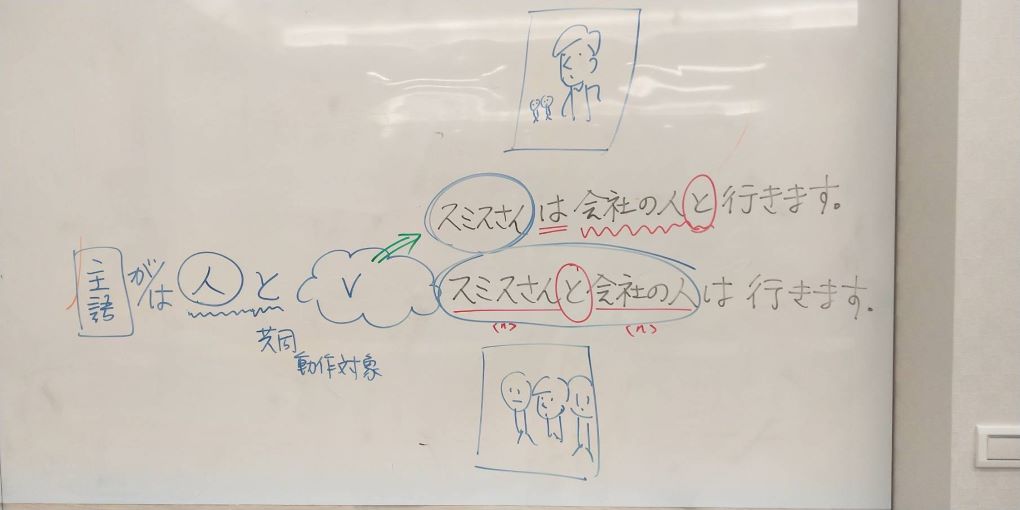 スミスさんは会社の人と行きます。
主語 が/は 人 と V
スミスさんと会社の人は行きます。
<n> <n>
共同
動作対象